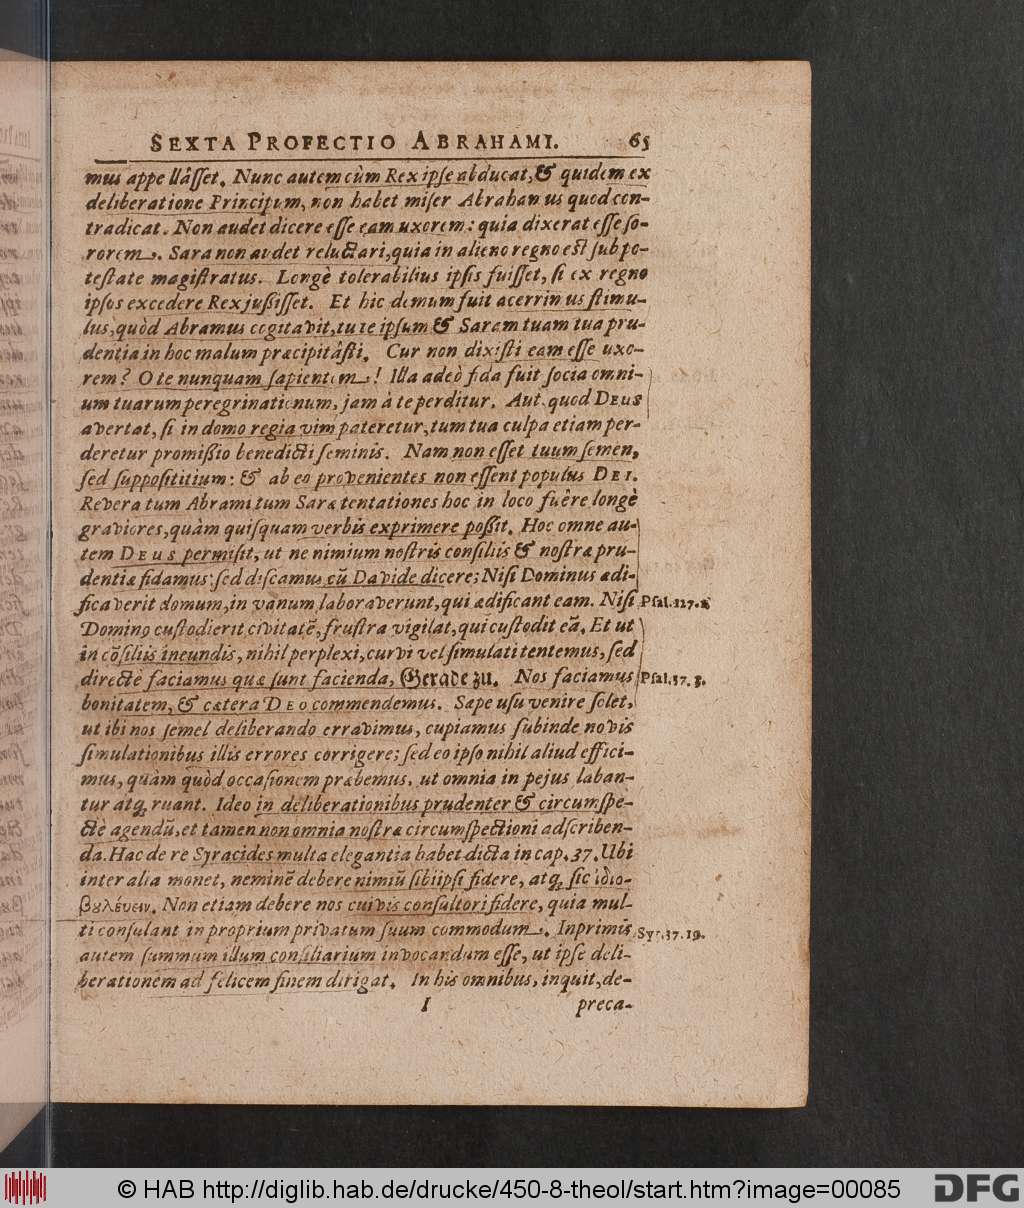 SEXTA PROFECTIO ABRAHAMI. 65
mus appellâſſet. Nunc autem cùm Rex ipſe abducat, & quidem ex
deliberatione Principum, non habet miſer Abrahamus quod con-
tradicat. Non audet dicere eſſe eam uxorem: quia dixerat eſſe ſo-
rorem. Sara non audet reluctari, quia in alieno regno eſt ſub po-
teſtate magiſtratus. Longè tolerabilius ipſis fuiſſet, ſi ex regno
ipſos excedere Rex juſſiſſet. Et hic demum fuit acerrimus ſtimu-
lus, quòd Abramus cogitavit, tu te ipſum & Saram tuam tua pru-
dentia in hoc malum præcipitâſti. Cur non dixiſti eam eſſe uxo-
rem? O te nunquam ſapientem! Illa adeò fida fuit ſocia omni-
um tuarum peregrinationum, jam à te perditur. Aut quod DEUS
avertat, ſi in domo regia vim pateretur, tum tua culpa etiam per-
deretur promiſſio benedicti ſeminis. Nam non eſſet tuum ſemen,
ſed ſuppoſititium: & ab eo provenientes non eſſent populus DEI.
Revera tum Abrami tum Saræ tentationes hoc in loco fuêre longè
graviores, quàm quiſquam verbis exprimere poſſit. Hoc omne au-
tem DEUS permiſit, ut ne nimium noſtris conſiliis & noſtra pru-
dentiæ fidamus: ſed diſcamus cũ Davide dicere; Niſi Dominus ædi-
ficaverit domum, in vanum laboraverunt, qui ædificant eam. Niſi Pſal. 127. 1
Domino cuſtodierit civitatẽ, fruſtra vigilat, qui cuſtodit eã. Et ut
in cõſiliis ineundis, nihil perplexi, curvi vel ſimulati tentemus, ſed
directè faciamus quæ ſunt facienda, Gerade zu. Nos faciamus Pſal. 37. 3.
bonitatem, & cætera DEO commendemus. Sæpe uſu venire ſolet,
ut ibi nos ſemel deliberando erravimus, cupiamus ſubinde novis
ſimulationibus illis errores corrigere; ſed eo ipſo nihil aliud effici-
mus, quàm quòd occaſionem præbemus, ut omnia in pejus laban-
tur atq; ruant. Ideo in deliberationibus prudenter & circumſpe-
ctè agendũ, et tamen non omnia noſtræ circumſpectioni adſcriben-
da. Hac de re Syracides multa elegantia habet dicta in cap. 37. Ubi
inter alia monet, neminẽ debere nimiũ ſibiipſi fidere, atq; ſic ἰδιο-
βȣλέυειν. Non etiam debere nos cuivis conſultori fidere, quia mul-
ti conſulant in proprium privatum ſuum commodum. Inprimis Syr. 37. 19.
autem ſummum illum conſiliarium invocandum eſſe, ut ipſe deli-
berationem ad felicem finem dirigat. In his omnibus, inquit, de-
I preca-
© HAB http://diglib.hab.de/drucke/450-8-theol/start.htm?image=00085 DFG